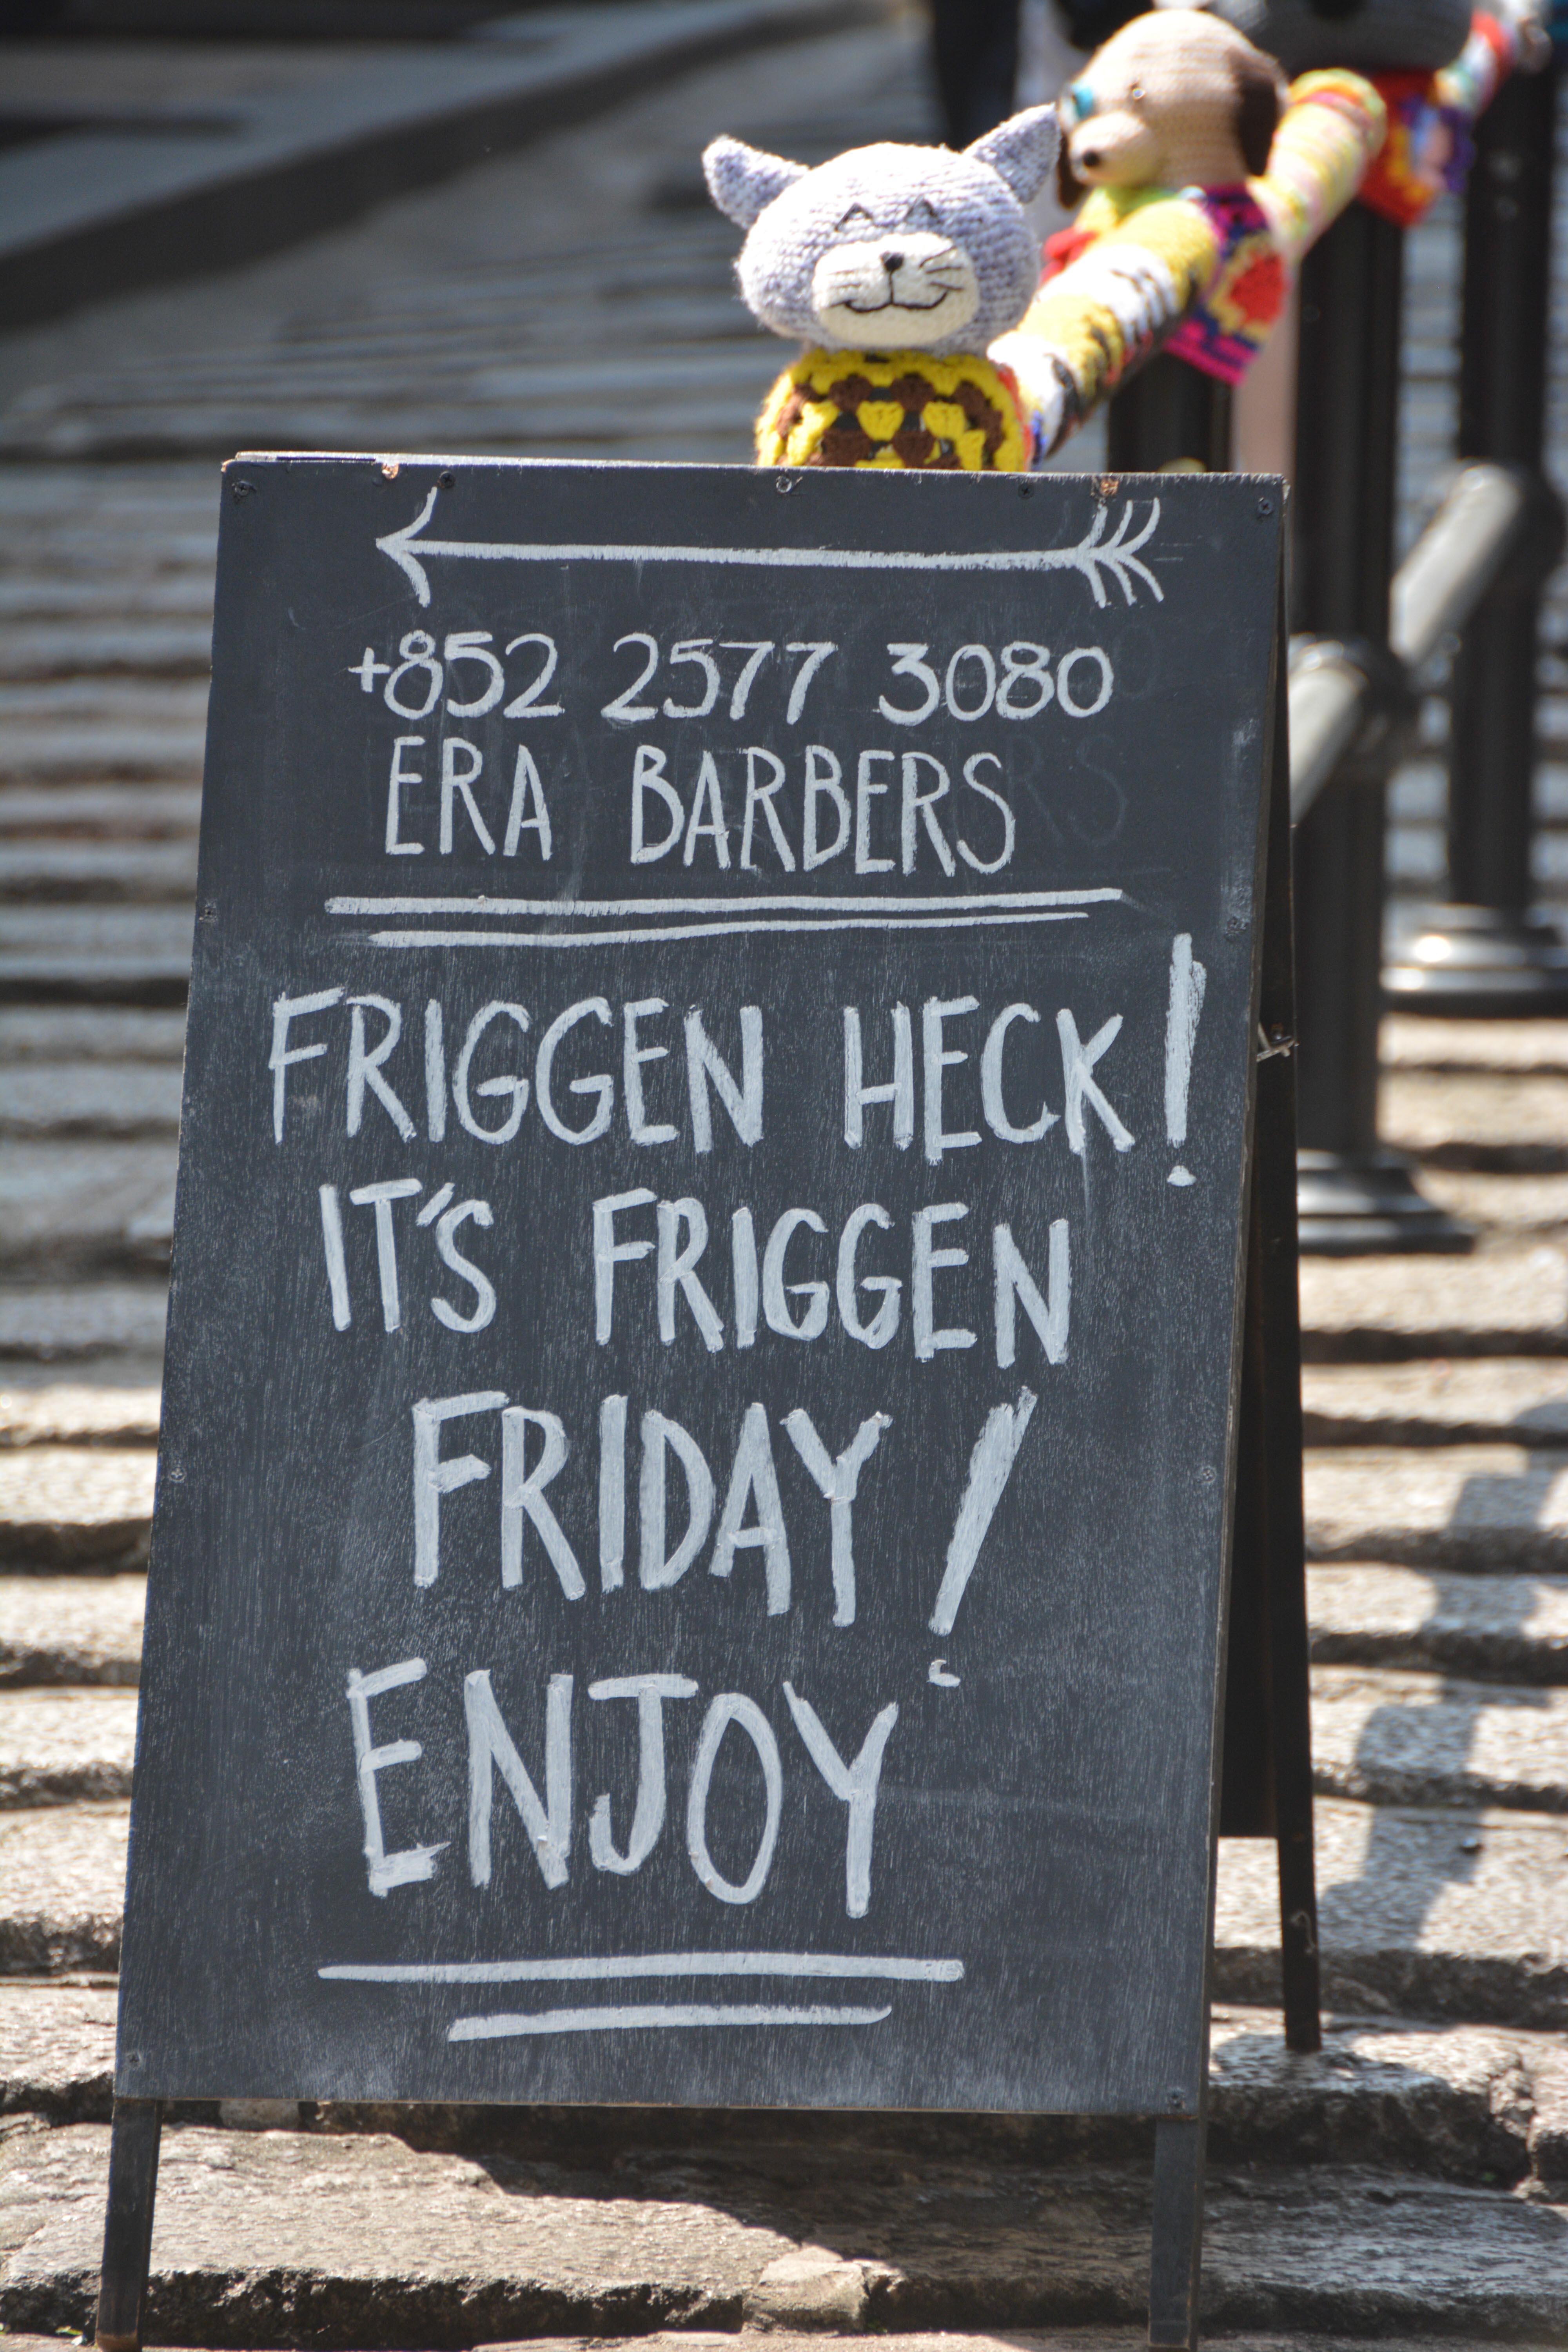 +852 2577 3080
ERA BARBERS
FRIGGEN HECK!
IT'S FRIGGEN
FRIDAY!
ENJOY